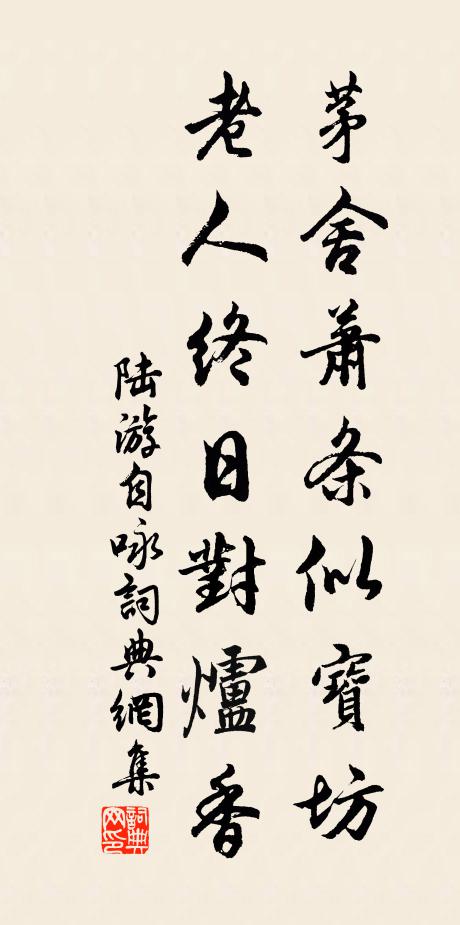 茅舍蕭条似寶坊
老人終日對爐香
陆游自咏詞典網集
詞典网印